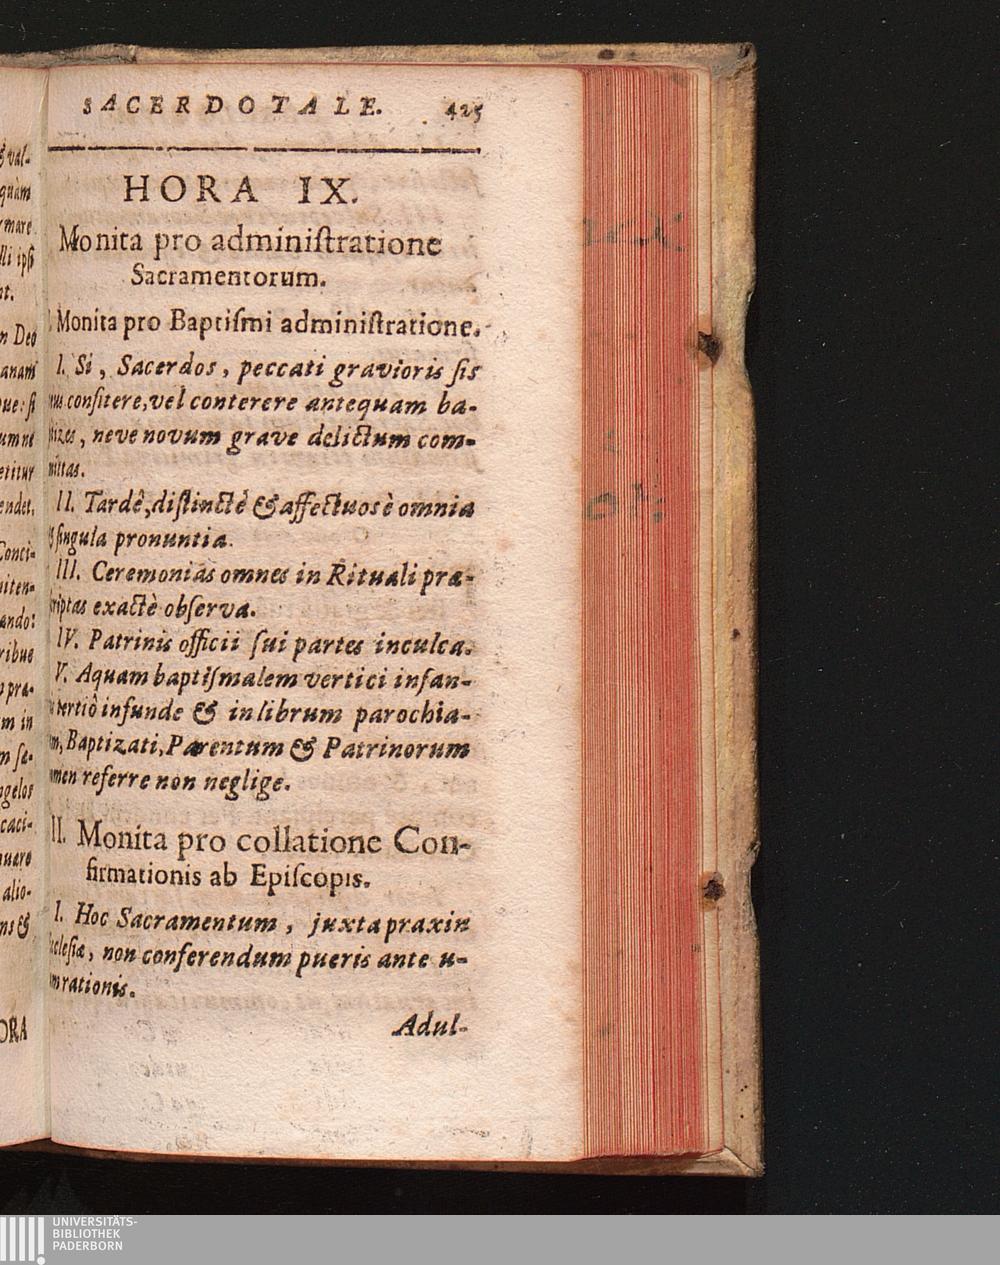 SACERDOTALE. 425
HORA IX.
Monita pro adminiſtratione
Sacramentorum.
Monita pro Baptiſmi adminiſtratione.
I. Si, Sacerdos, peccati gravioris ſis
confitere, vel conterere antequam ba-
tizes, neve novum grave delictum com-
mittas.
II. Tardê, diſtinctè & affectuosè omnia
& ſingula pronuntia.
III. Ceremonias omnes in Rituali præ-
ſcriptas exactè obſerva.
IV. Patrinis officii ſui partes inculca.
V. Aquam baptiſmalem vertici infan-
tertiô infunde & in librum parochia-
Baptizati, Parentum & Patrinorum
men referre non neglige.
II. Monita pro collatione Con-
firmationis ab Epiſcopis.
I. Hoc Sacramentum, juxta praxin
Eccleſiæ, non conferendum pueris ante u-
rationis.
Adul-
& val-
quàm
mare
lli ipſi
nt.
n Deo
anam
que: ſi
umne
etitur
endet.
Conci-
niten-
ando:
ribus
præ-
m in
m ſæ-
ngelos
caci-
nuare
alio-
ns &
ORA
UNIVERSITÄTS-
BIBLIOTHEK
PADERBORN